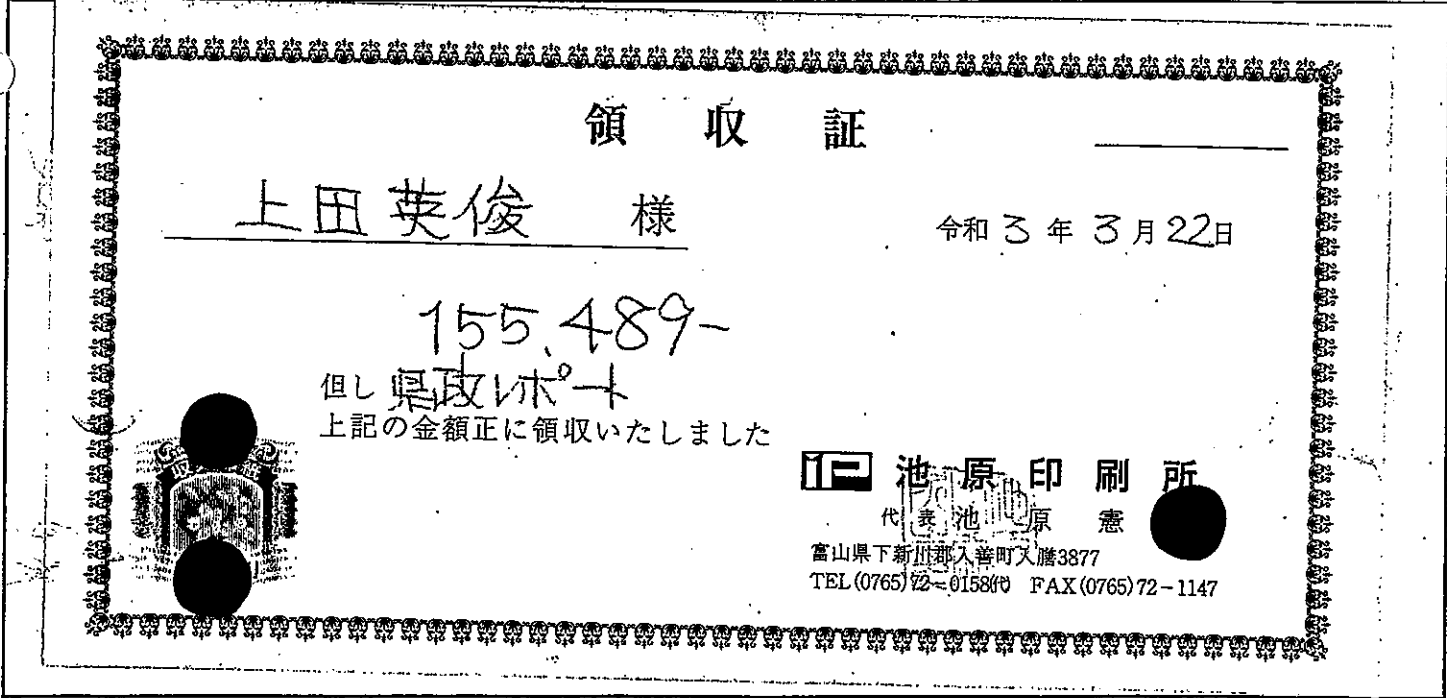 領収証
上田英俊 様
令和3年3月22日
155,489-
但し 県政レポート
上記の金額正に領収いたしました
池原印刷所
代表 池原 憲
富山県下新川郡入善町入膳3877
TEL(0765)72-0158代 FAX(0765)72-1147